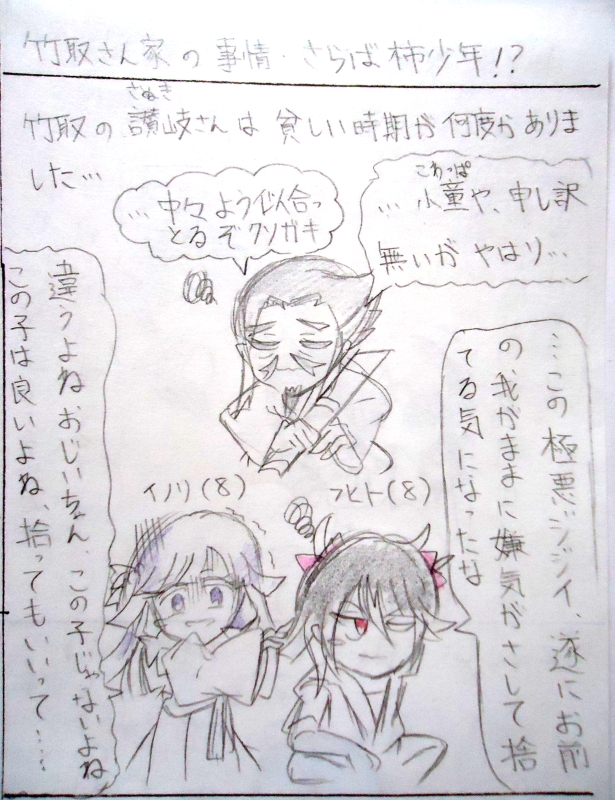 竹取さん家の事情・さらば柿少年!?
さぬき
竹取の讃岐さんは貧しい時期が何度かありま
した…
こわっぱ
…小童や、申し訳
無いがやはり…
…中々よう似合っ
とるぞクソガキ
…この極悪ジジイ、遂にお前
の、我がままに嫌気がさして捨
てる気になったな
違うよねおじいちゃん、この子じゃないよね
この子は良いよね、拾ってもいいって……
フヒト(8)
イノリ(8)